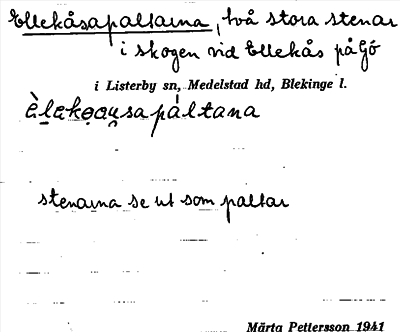 Ellekåsapaltarna, två stora stenar
i skogen vid Ellekås på Gö
i Listerby sn, Medelstad hd, Blekinge l.
stenarna se ut som paltar
Märta Pettersson 1941